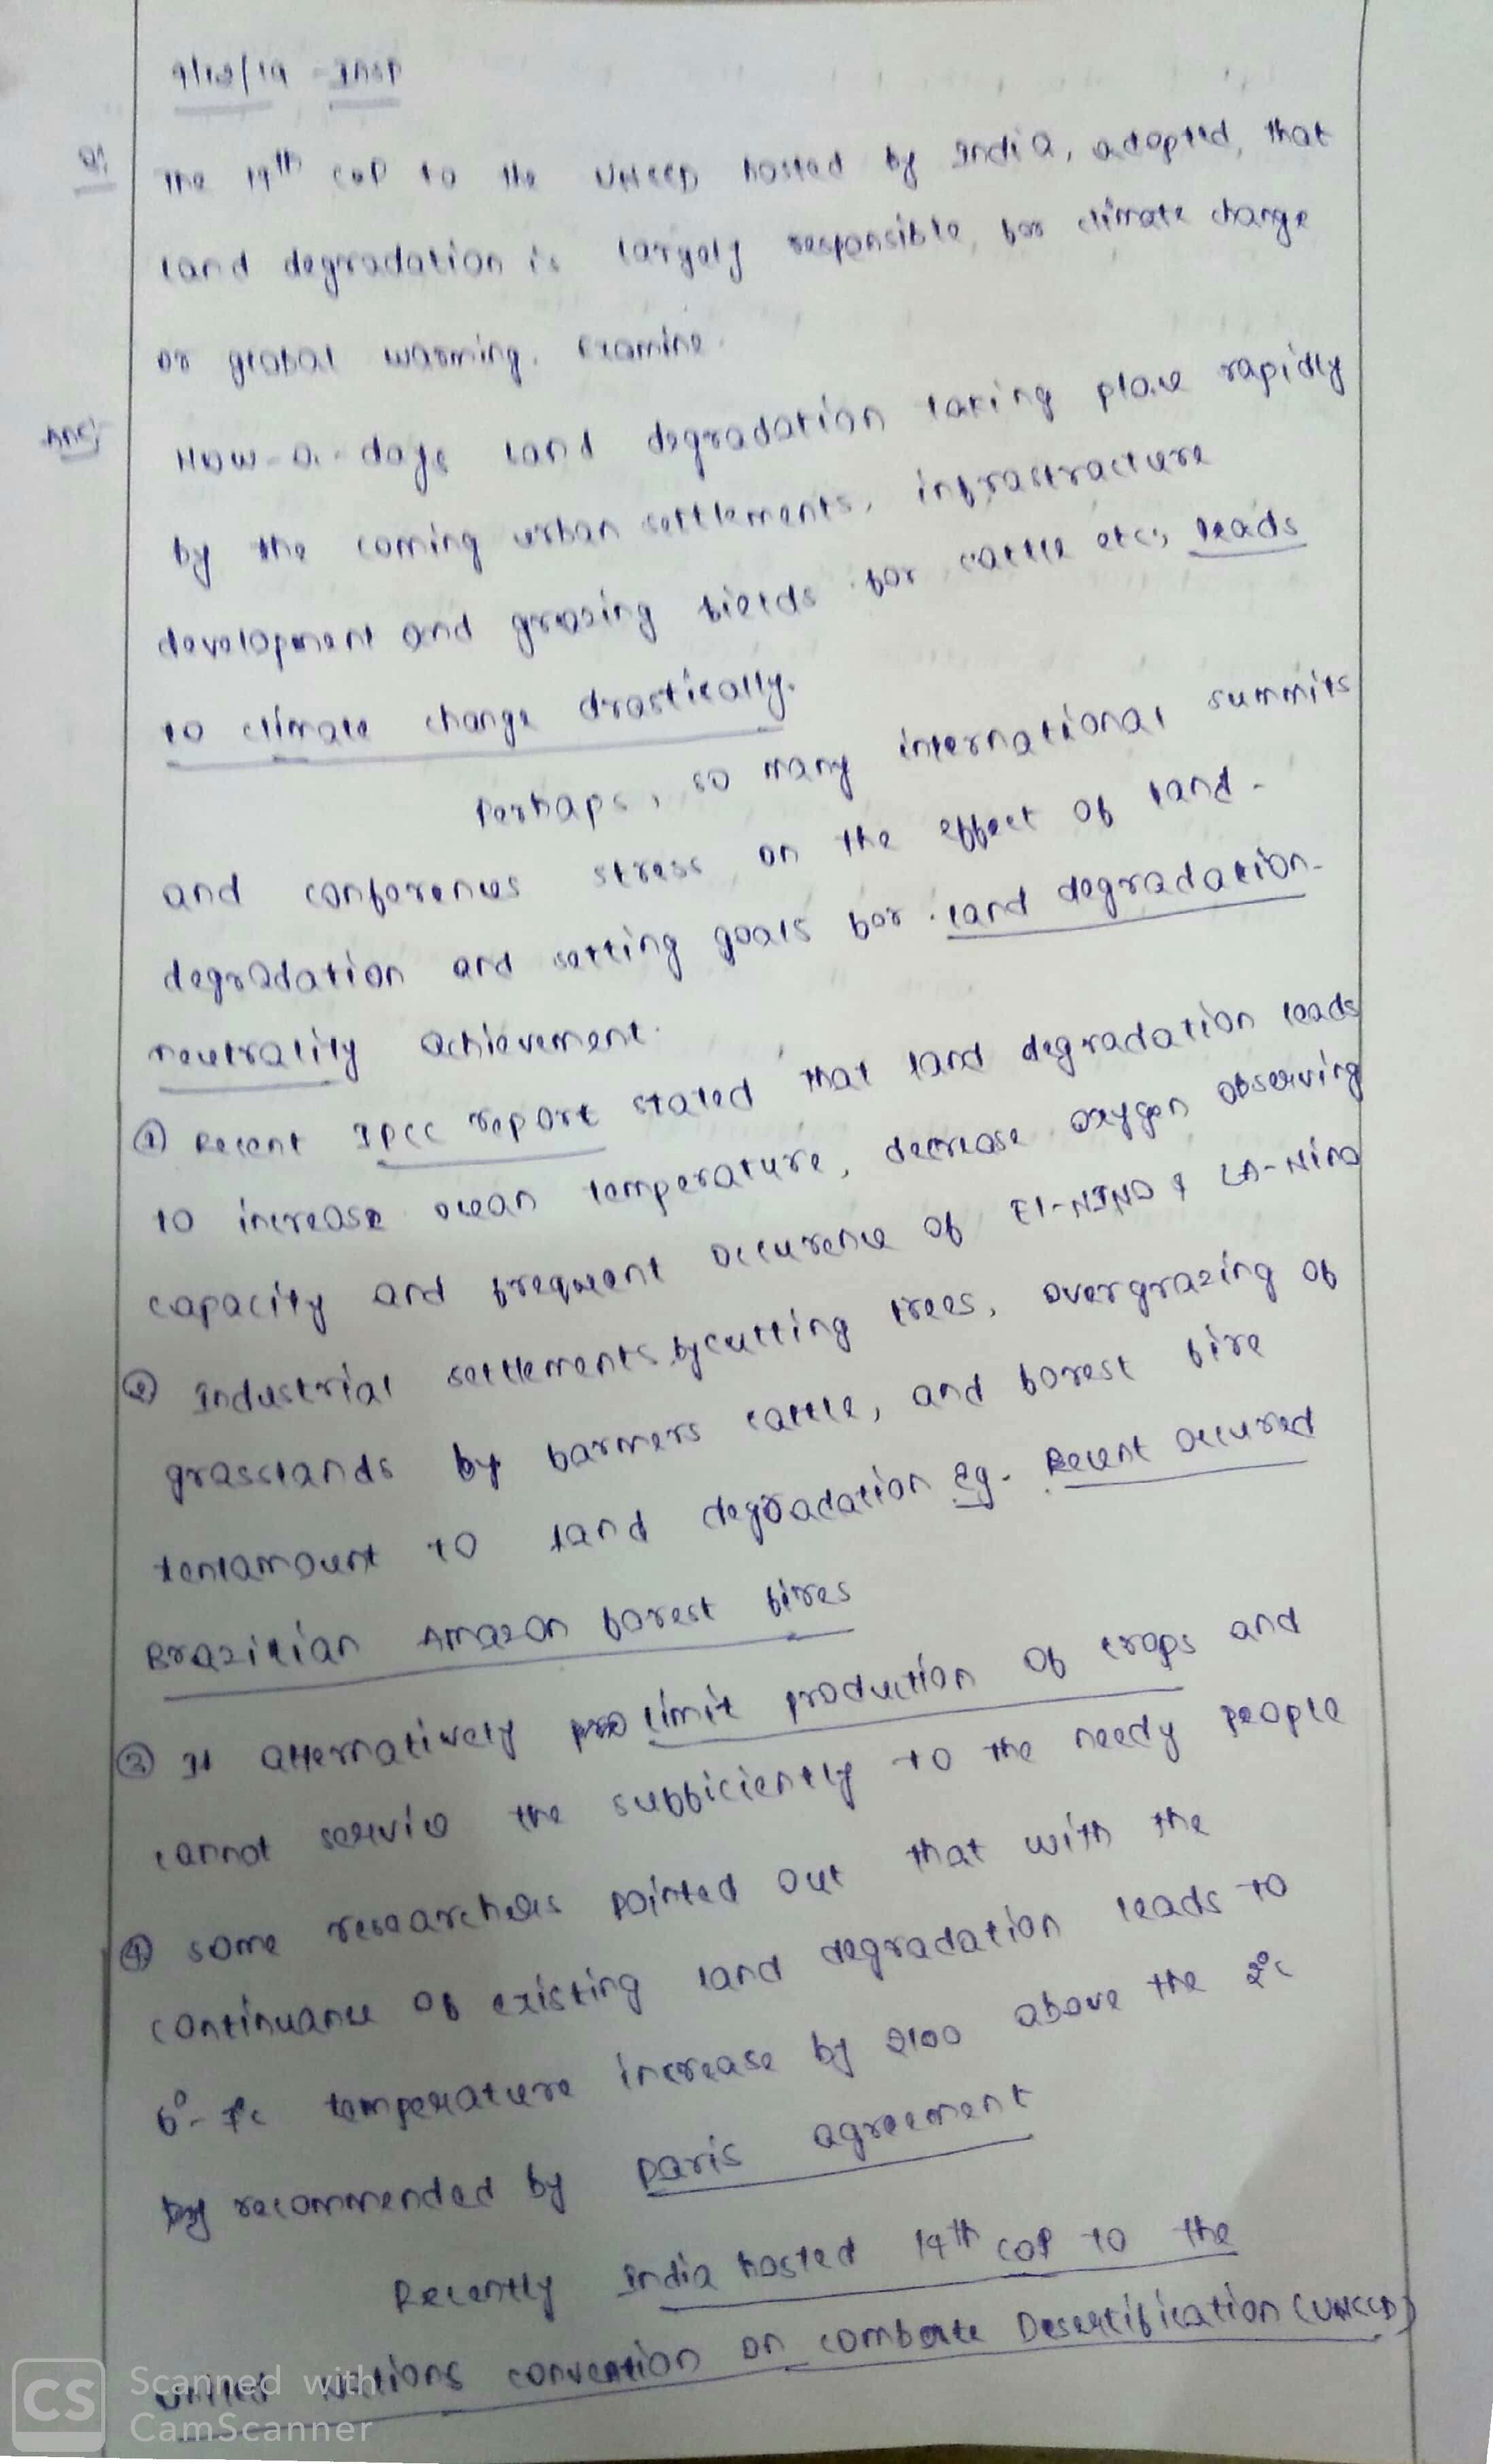 9/12/19 - INSP
Q1 The 14th COP to the UNCCD hosted by India, adopted, that
land degradation is largely responsible, for climate change
or global warming. Examine.
Ans:- Now-a-days land degradation taking place rapidly
by the coming urban settlements, infrastracture
development and grazing fields for cattle etc, leads
to climate change drastically.
Perhaps, so many international summits
and conferences stress on the effect of land-
degradation and setting goals for land degradation-
neutrality achievement.
① Recent IPCC report stated that land degradation leads
to increase ocean temperature, decrease oxygen observing
capacity and frequent occurence of El-NINO & LA-Nino
② Industrial settlements by cutting trees, overgrazing of
grasslands by farmers cattle, and forest fire
tentamount to land degradation eg. Recent occured
Brazilian Amazon forest fires
③ It alternatively limit production of crops and
cannot service the sufficiently to the needy people
④ some researchers pointed out that with the
continuance of existing land degradation leads to
6°-7°c temperature increase by 2100 above the 2°c
recommended by paris agreement
Recently India hosted 14th COP to the
united Nations convention on combate Desertification (UNCCD)
CS Scanned with
CamScanner